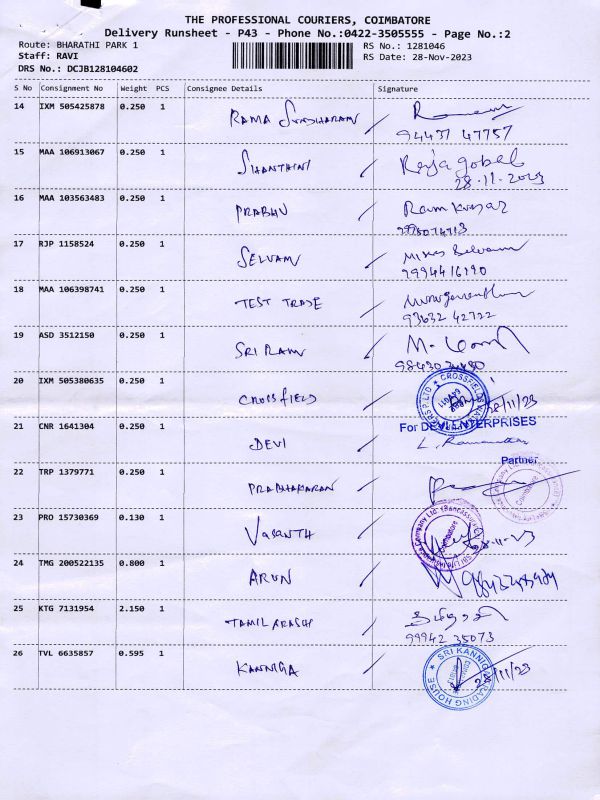 THE PROFESSIONAL COURIERS, COIMBATORE
Delivery Runsheet - P43 - Phone No.:0422-3505555 - Page No.:2
Route: BHARATHI PARK 1 RS No.: 1281046
Staff: RAVI RS Date: 28-Nov-2023
DRS No.: DCJB128104602
S No Consignment No Weight PCS Consignee Details Signature
14 IXM 505425878 0.250 1 RAMA
94437 47757
15 MAA 106913067 0.250 1 SHANTHINI Rajagobal
28.11.2023
16 MAA 103563483 0.250 1 PRABHU Ramkumar
17 RJP 1158524 0.250 1 SELVAM Selvam
9994416190
18 MAA 106398741 0.250 1 TEST TRADE
93632 42722
19 ASD 3512150 0.250 1 SRI RAM
20 IXM 505380635 0.250 1 CROSSFIELD CROSSFIELDS 28/11/23
21 CNR 1641304 0.250 1 DEVI For DEVI ENTERPRISES
Partner
22 TRP 1379771 0.250 1 PRABHAKARAN
23 PRO 15730369 0.130 1 VASANTH 28-11-23
24 TMG 200522135 0.800 1 ARUN
25 KTG 7131954 2.150 1 TAMIL ARASI
99942 35073
26 TVL 6635857 0.595 1 KANNIGA SRI KANNIGA TRADING HOUSE 28/11/23